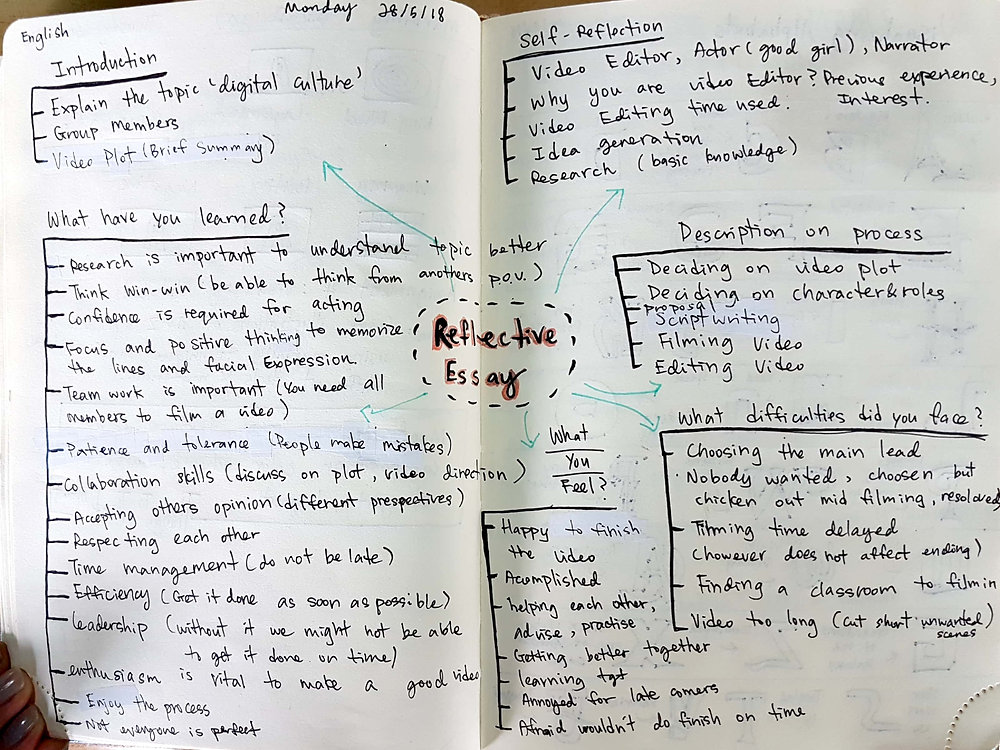 English
Monday 28/5/18
Introduction
Explain the topic 'digital culture'
Group members
Video Plot (Brief Summary)
Self-Reflection
Video Editor, Actor (good girl), Narrator
Why you are video Editor? Previous experience,
Interest.
Video Editing time used.
Idea generation
Research (basic knowledge)
What have you learned?
Research is important to understand topic better
Think win-win (be able to think from anothers p.o.v.)
Confidence is required for acting
Focus and positive thinking to memorize
the lines and facial Expression.
Team work is important (You need all
members to film a video)
Patience and tolerance (People make mistakes)
Collaboration skills (discuss on plot, video direction)
Accepting others opinion (different prespectives)
Respecting each other
Time management (do not be late)
Efficiency (Get it done as soon as possible)
leadership (without it we might not be able
to get it done on time)
enthusiasm is vital to make a good video
Enjoy the process
Not everyone is perfect
Reflective
Essay
Description on process
Deciding on video plot
Deciding on character & roles
proposal
Script writing
Filming Video
Editing Video
What
You
Feel?
Happy to finish
the video
Acomplished
helping each other,
advise, practise
Getting better together
learning tgt
Annoyed for late comers
Afraid wouldn't do finish on time
What difficulties did you face?
Choosing the main lead
Nobody wanted, chosen but
chicken out mid filming, resoloved
Filming time delayed
(however does not affect ending)
Finding a classroom to film in
Video too long (cut short unwanted
scenes